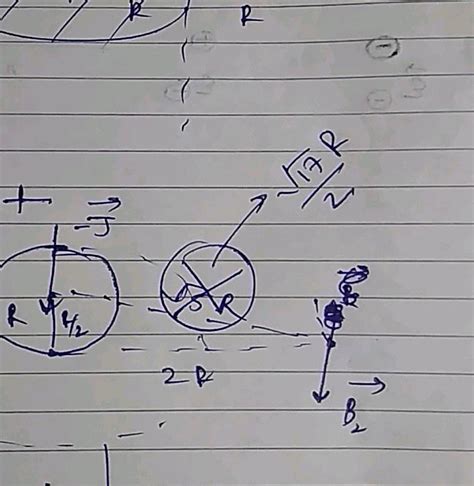 R R
√17 R / 2
+ -J
R R/2
R
2R
B₂